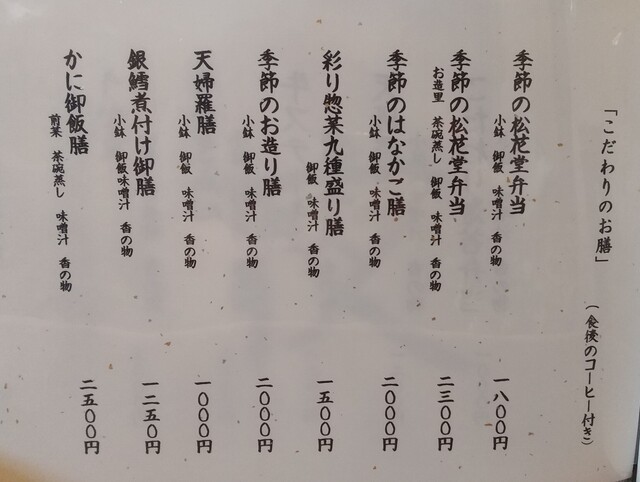 「こだわりのお膳」
(食後のコーヒー付き)
季節の松花堂弁当
小鉢 御飯 味噌汁 香の物
一八〇〇円
季節の松花堂弁当
お造里 茶碗蒸し 御飯 味噌汁 香の物
二三〇〇円
季節のはなかご膳
小鉢 御飯 味噌汁 香の物
二〇〇〇円
彩り惣菜九種盛り膳
御飯 味噌汁 香の物
一五〇〇円
季節のお造り膳
小鉢 御飯 味噌汁 香の物
二〇〇〇円
天婦羅膳
小鉢 御飯 味噌汁 香の物
一〇〇〇円
銀鱈煮付け御膳
小鉢 御飯 味噌汁 香の物
一二五〇円
かに御飯膳
前菜 茶碗蒸し 味噌汁 香の物
二五〇〇円